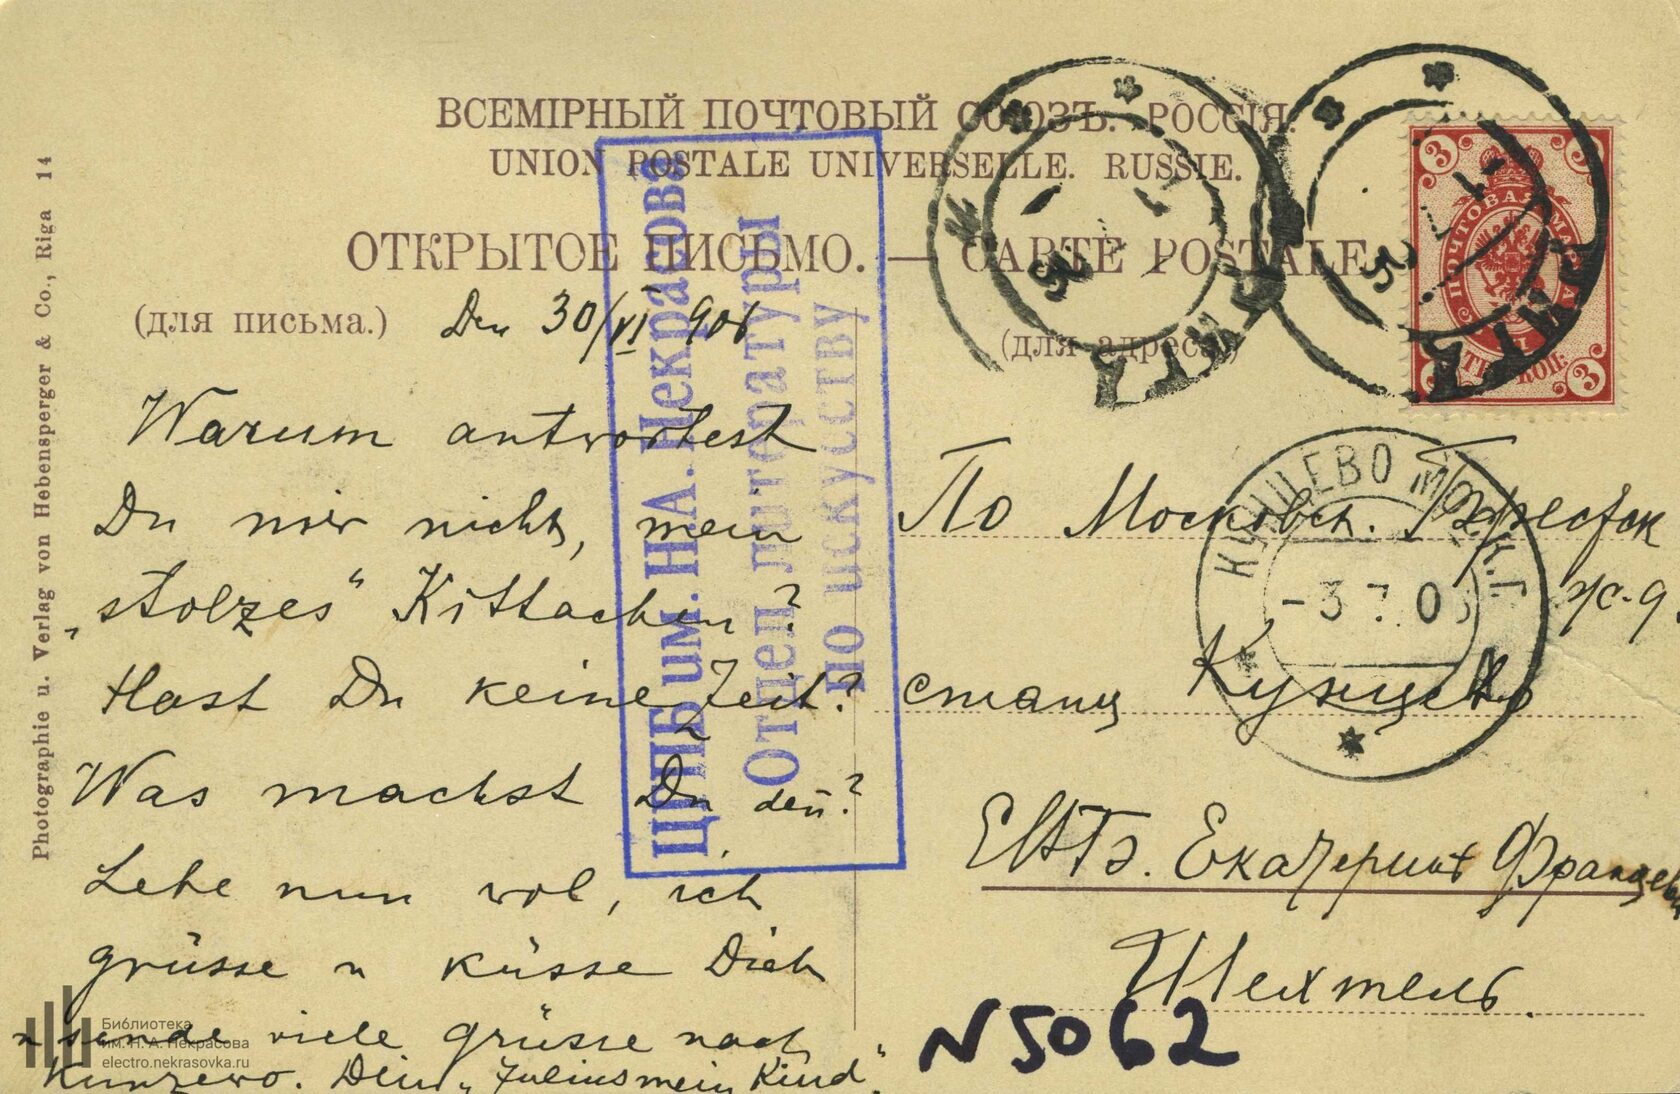 ВСЕМІРНЫЙ ПОЧТОВЫЙ СОЮЗЪ. РОССІЯ.
UNION POSTALE UNIVERSELLE. RUSSIE.
ОТКРЫТОЕ ПИСЬМО. — CARTE POSTALE.
(для письма.)
(для адреса.)
Den 30/VI 906
Warum antwortest
Du mir nicht, mein
„stolzes“ Kittachen?
Hast Du keine Zeit?
Was machst Du den̄?
Lebe nun wol, ich
grüsse u küsse Dich
u sende viele grüsse nach
Kunzewo. Dein „Julius mein Kind“.
По Московск. Брестск
ж.д.
станц Кунцево
ЕВБ. Екатеринѣ Францевнѣ
Шехтель.
N 5062
Photographie u. Verlag von Hebensperger & Co., Riga 14
ЦГПБ им. Н.А. Некрасова
Отдел литературы
по искусству
ПОЧТОВАЯ МАРКА
3
3
3
ТРИ КОП.
КУНЦЕВО МОСК. Г.
-3 7 06
Библиотека
им. Н. А. Некрасова
electro.nekrasovka.ru